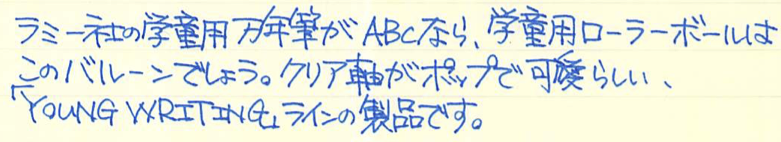 ラミー社の学童用万年筆がABCなら、学童用ローラーボールは
このバルーンでしょう。クリア軸がポップで可愛らしい、
「YOUNG WRITING」ラインの製品です。